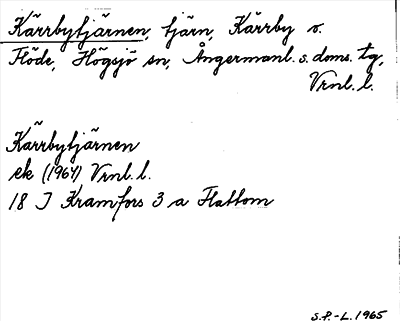 Kärrbytjärnen, tjärn, Kärrby o.
Flöde, Högsjö sn, Ångermanl. s. doms. tg,
Vrnl. l.
Kärrbytjärnen
ek (1964) Vrnl. l.
18 I Kramfors 3 a Flattom
S.P.-L. 1965